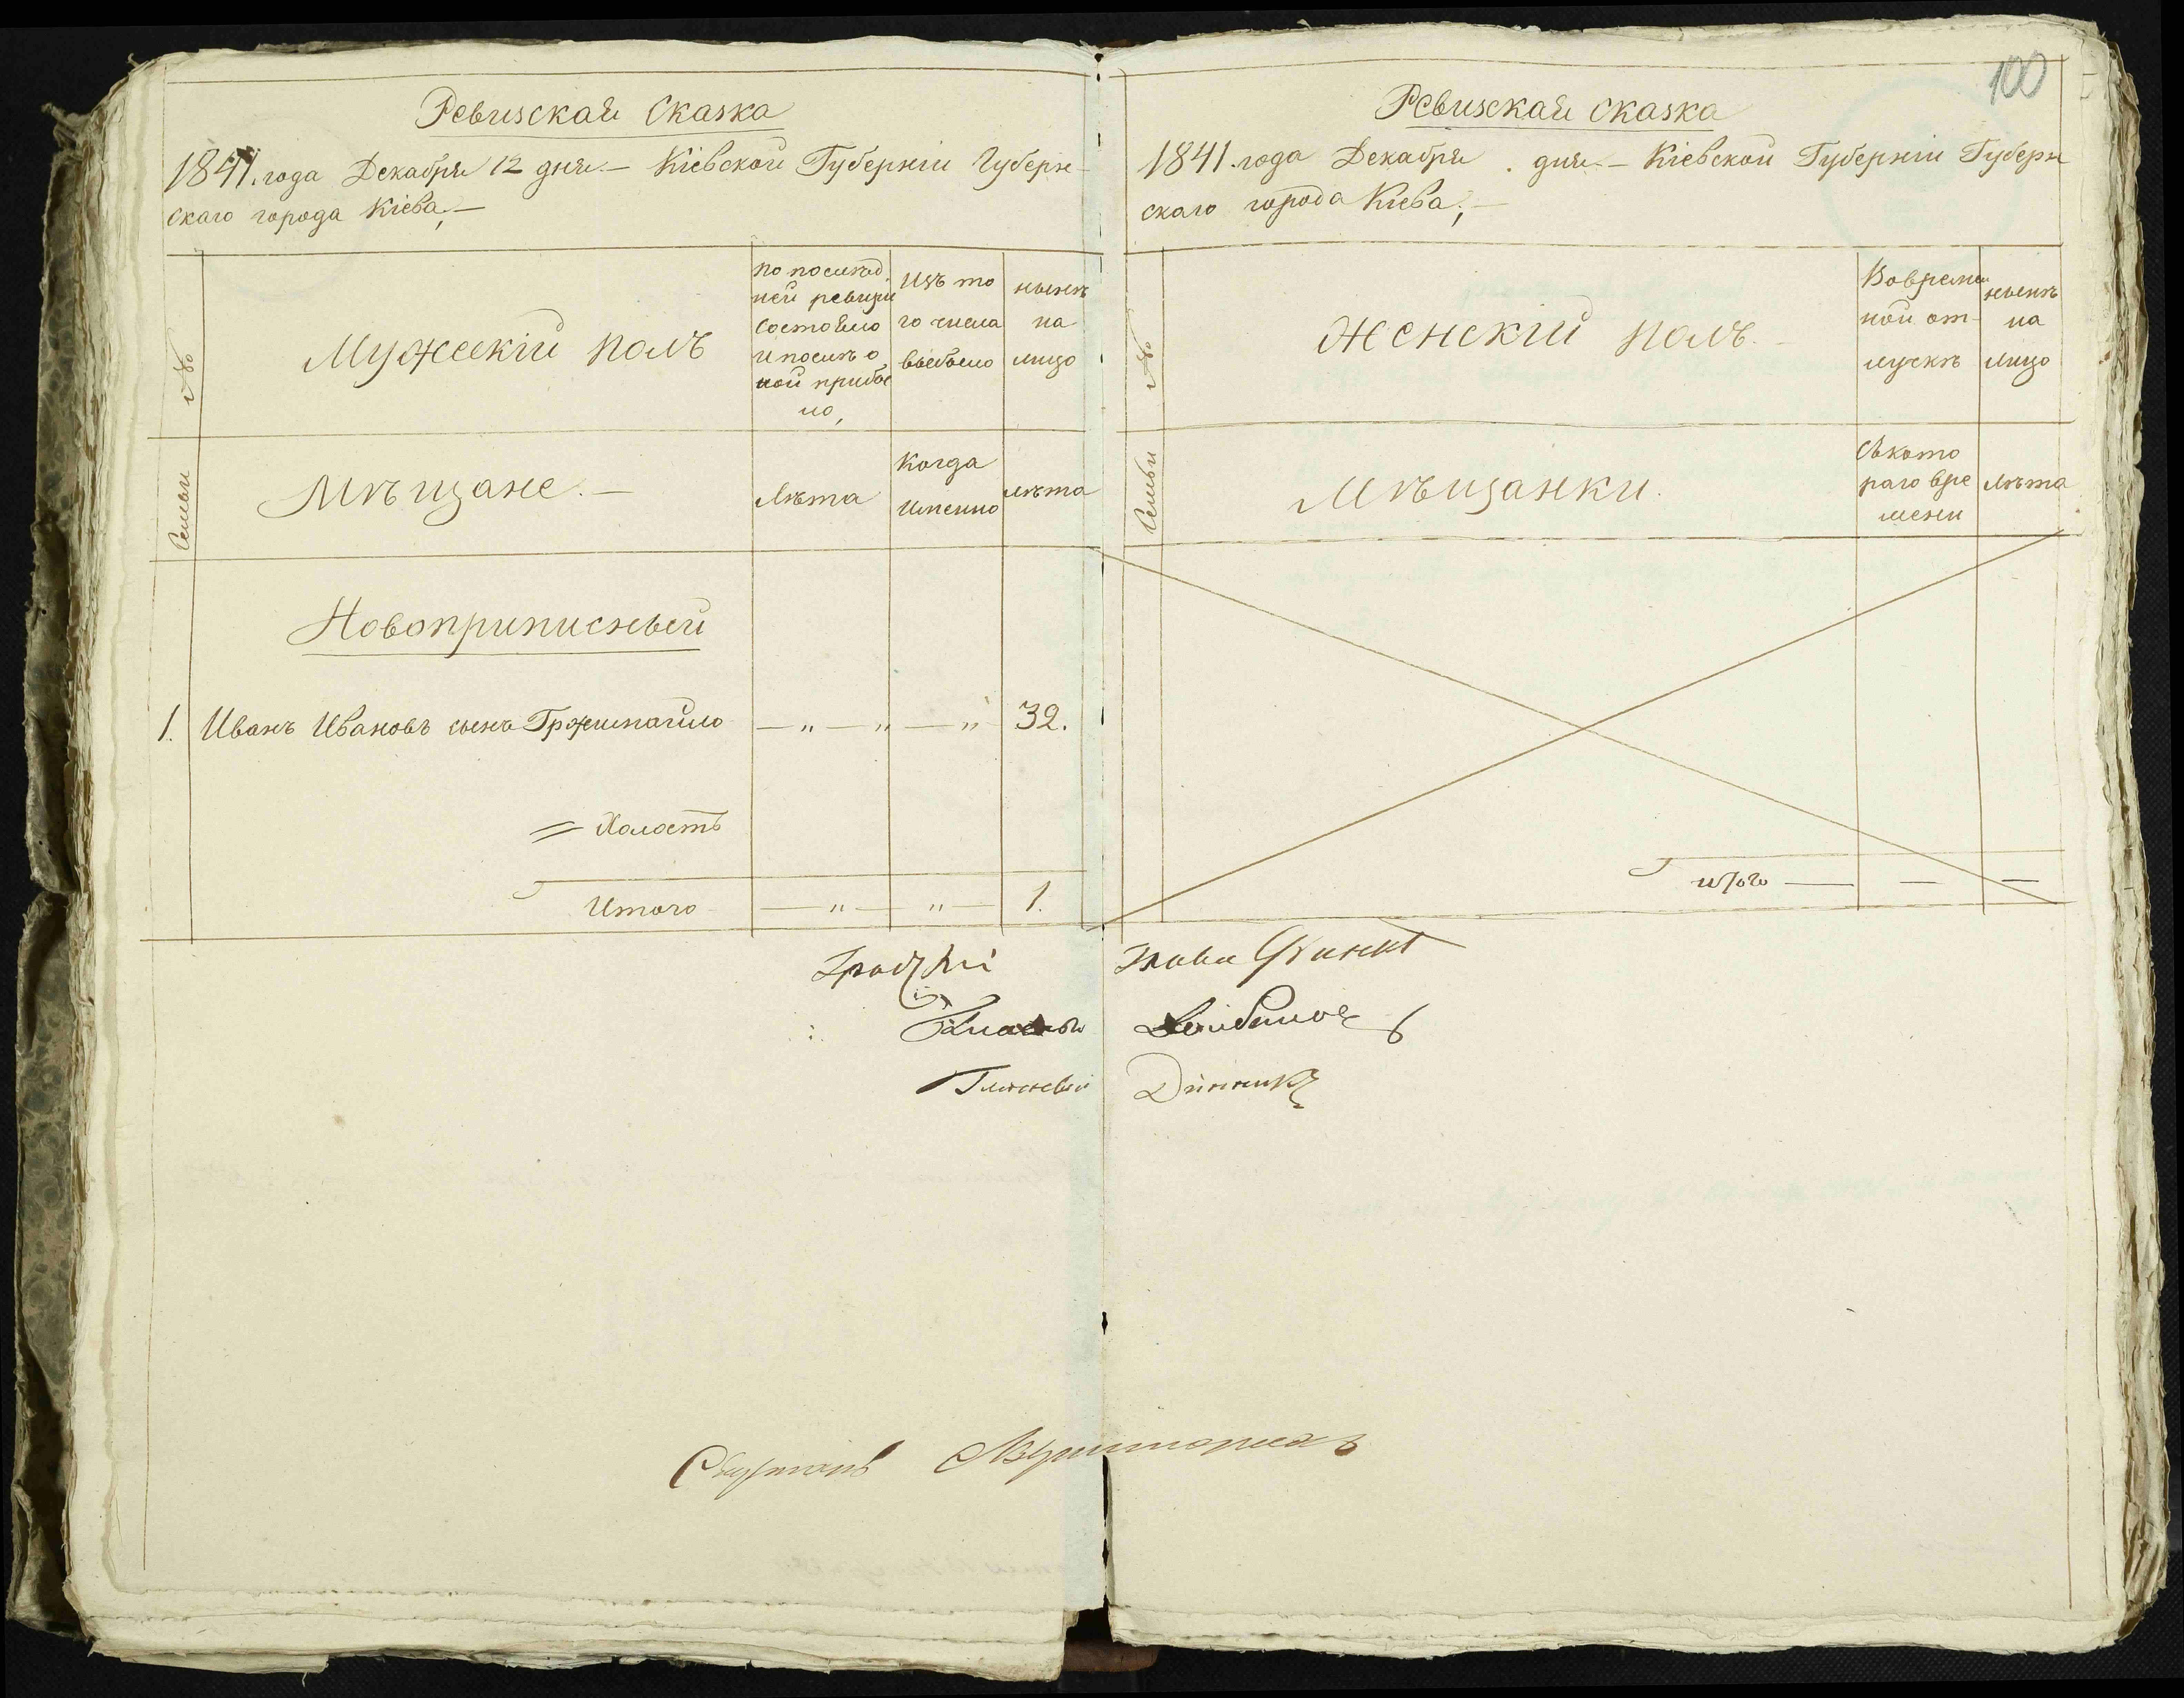 Ревизская Сказка
1841. года Декабря 12 дня. — Кіевской Губерніи Губерн-
скаго города Кіева; —
№
Мужескій полъ
по послѣд
ней ревизіи
состояло
и послѣ о
ной прибы
ло,
Изъ то
го числа
выбыло
нынѣ
на
лицо
Семьи
Мѣщане. —
Лѣта
Когда
Именно
лѣта
Новоприписный
1. Иванъ Ивановъ сынъ Гржимайло — „ — „ — „ 32.
= Холостъ
Итого — „ — „ — 1.
100
Ревизская сказка
1841. года Декабря . дня. — Кіевской Губерніи Губерн
скаго города Кіева; —
№
Женскій полъ. —
Вовремен
ной от-
лучкѣ
нынѣ
на
лицо
Семьи
Мѣщанки.
Съкото
раго вре
мени
Лѣта
итого — — —
Градскій Глава
Гласный
Гласный Динникъ